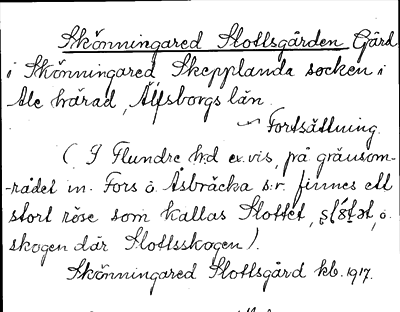 Skönningared Slottsgården Gård
i Skönningared, Skepplanda socken i
Ale härad, Älfsborgs län.
Fortsättning.
( I Flundre h:d ex. vis, på gränsom-
-rådet m. Fors o. Åsbräcka s:r. finnes ett
stort röse som kallas Slottet, o.
skogen där Slottsskogen).
Skönningared Slottsgård kb. 1917.